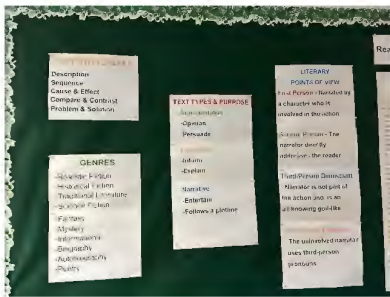 Description
Sequence
Cause & Effect
Compare & Contrast
Problem & Solution
GENRES
-Realistic Fiction
-Historical Fiction
-Traditional Literature
-Science Fiction
-Fantasy
-Mystery
-Informational
-Biography
-Autobiography
-Poetry
TEXT TYPES & PURPOSE
-Opinion
Persuade
-Inform
-Explain
Narrative
-Entertain
-Follows a plotline
LITERARY
POINTS OF VIEW
First Person - Narrated by
a character who is
involved in the action
Second Person - The
narrator directly
addresses the reader
Third Person Omniscient
- Narrator is not part of
the action and is an
all knowing god-like
The uninvolved narrator
uses third-person
pronouns
Rea